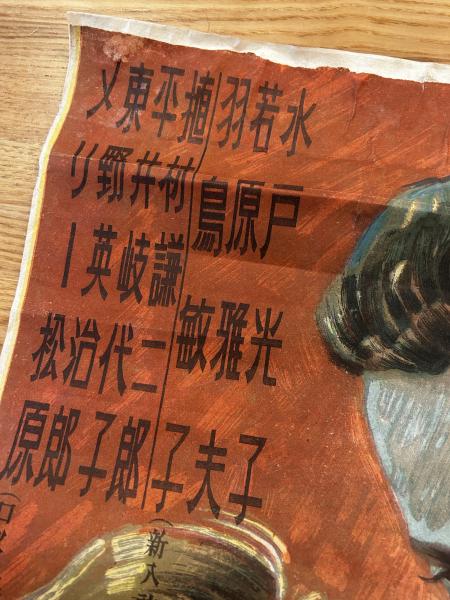 水戸光子
若原雅夫
羽鳥敏子
植村謙二郎
(新
平井岐代子
東野英治郎
メリー松原